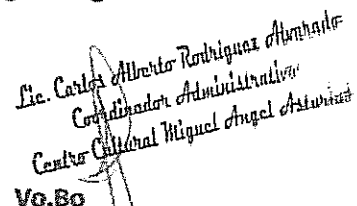 Lic. Carlos Alberto Rodriguez Alvarado
Coordinador Administrativo
Centro Cultural Miguel Angel Asturias
Vo.Bo